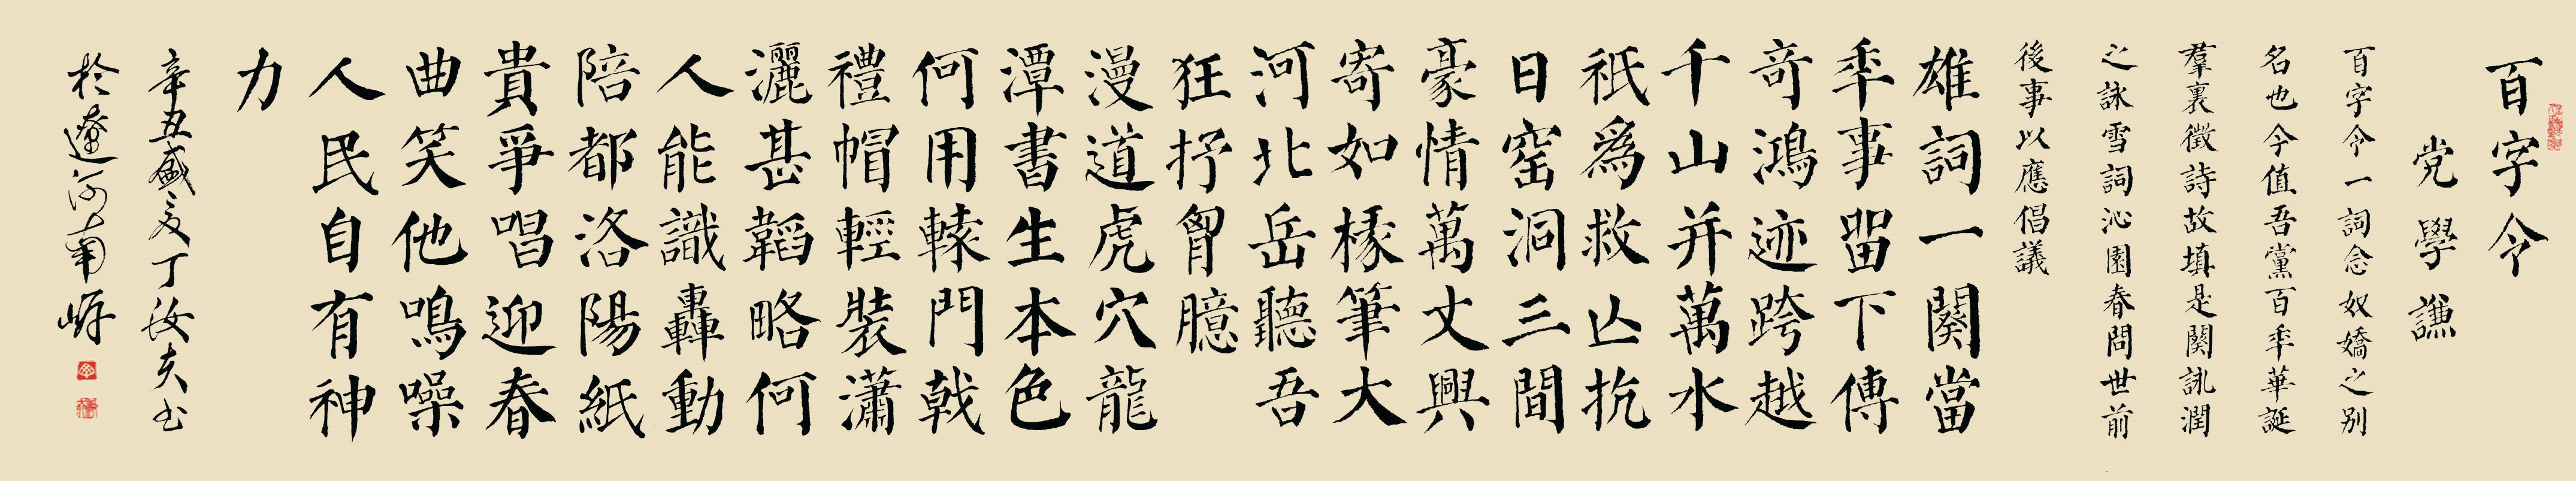 百字令
党學謙
百字令一詞念奴嬌之别
名也今值吾黨百秊華誕
羣裏徵詩故填是闋潤
之詠雪詞沁園春問世前
後事以應倡議
雄詞一闋當
秊事留下傳
奇鴻迹跨越
千山并萬水
祇爲救亾抗
日窑洞三間
豪情萬丈興
寄如椽筆大
河北岳聽吾
狂抒胷臆
漫道虎穴龍
潭書生本色
何用轅門戟
禮帽輕裝瀟
灑甚韜略何
人能識轟動
陪都洛陽紙
貴爭唱迎春
曲笑他鳴噪
人民自有神
力
辛丑盛夏丁汝夫书
於遼河南岸